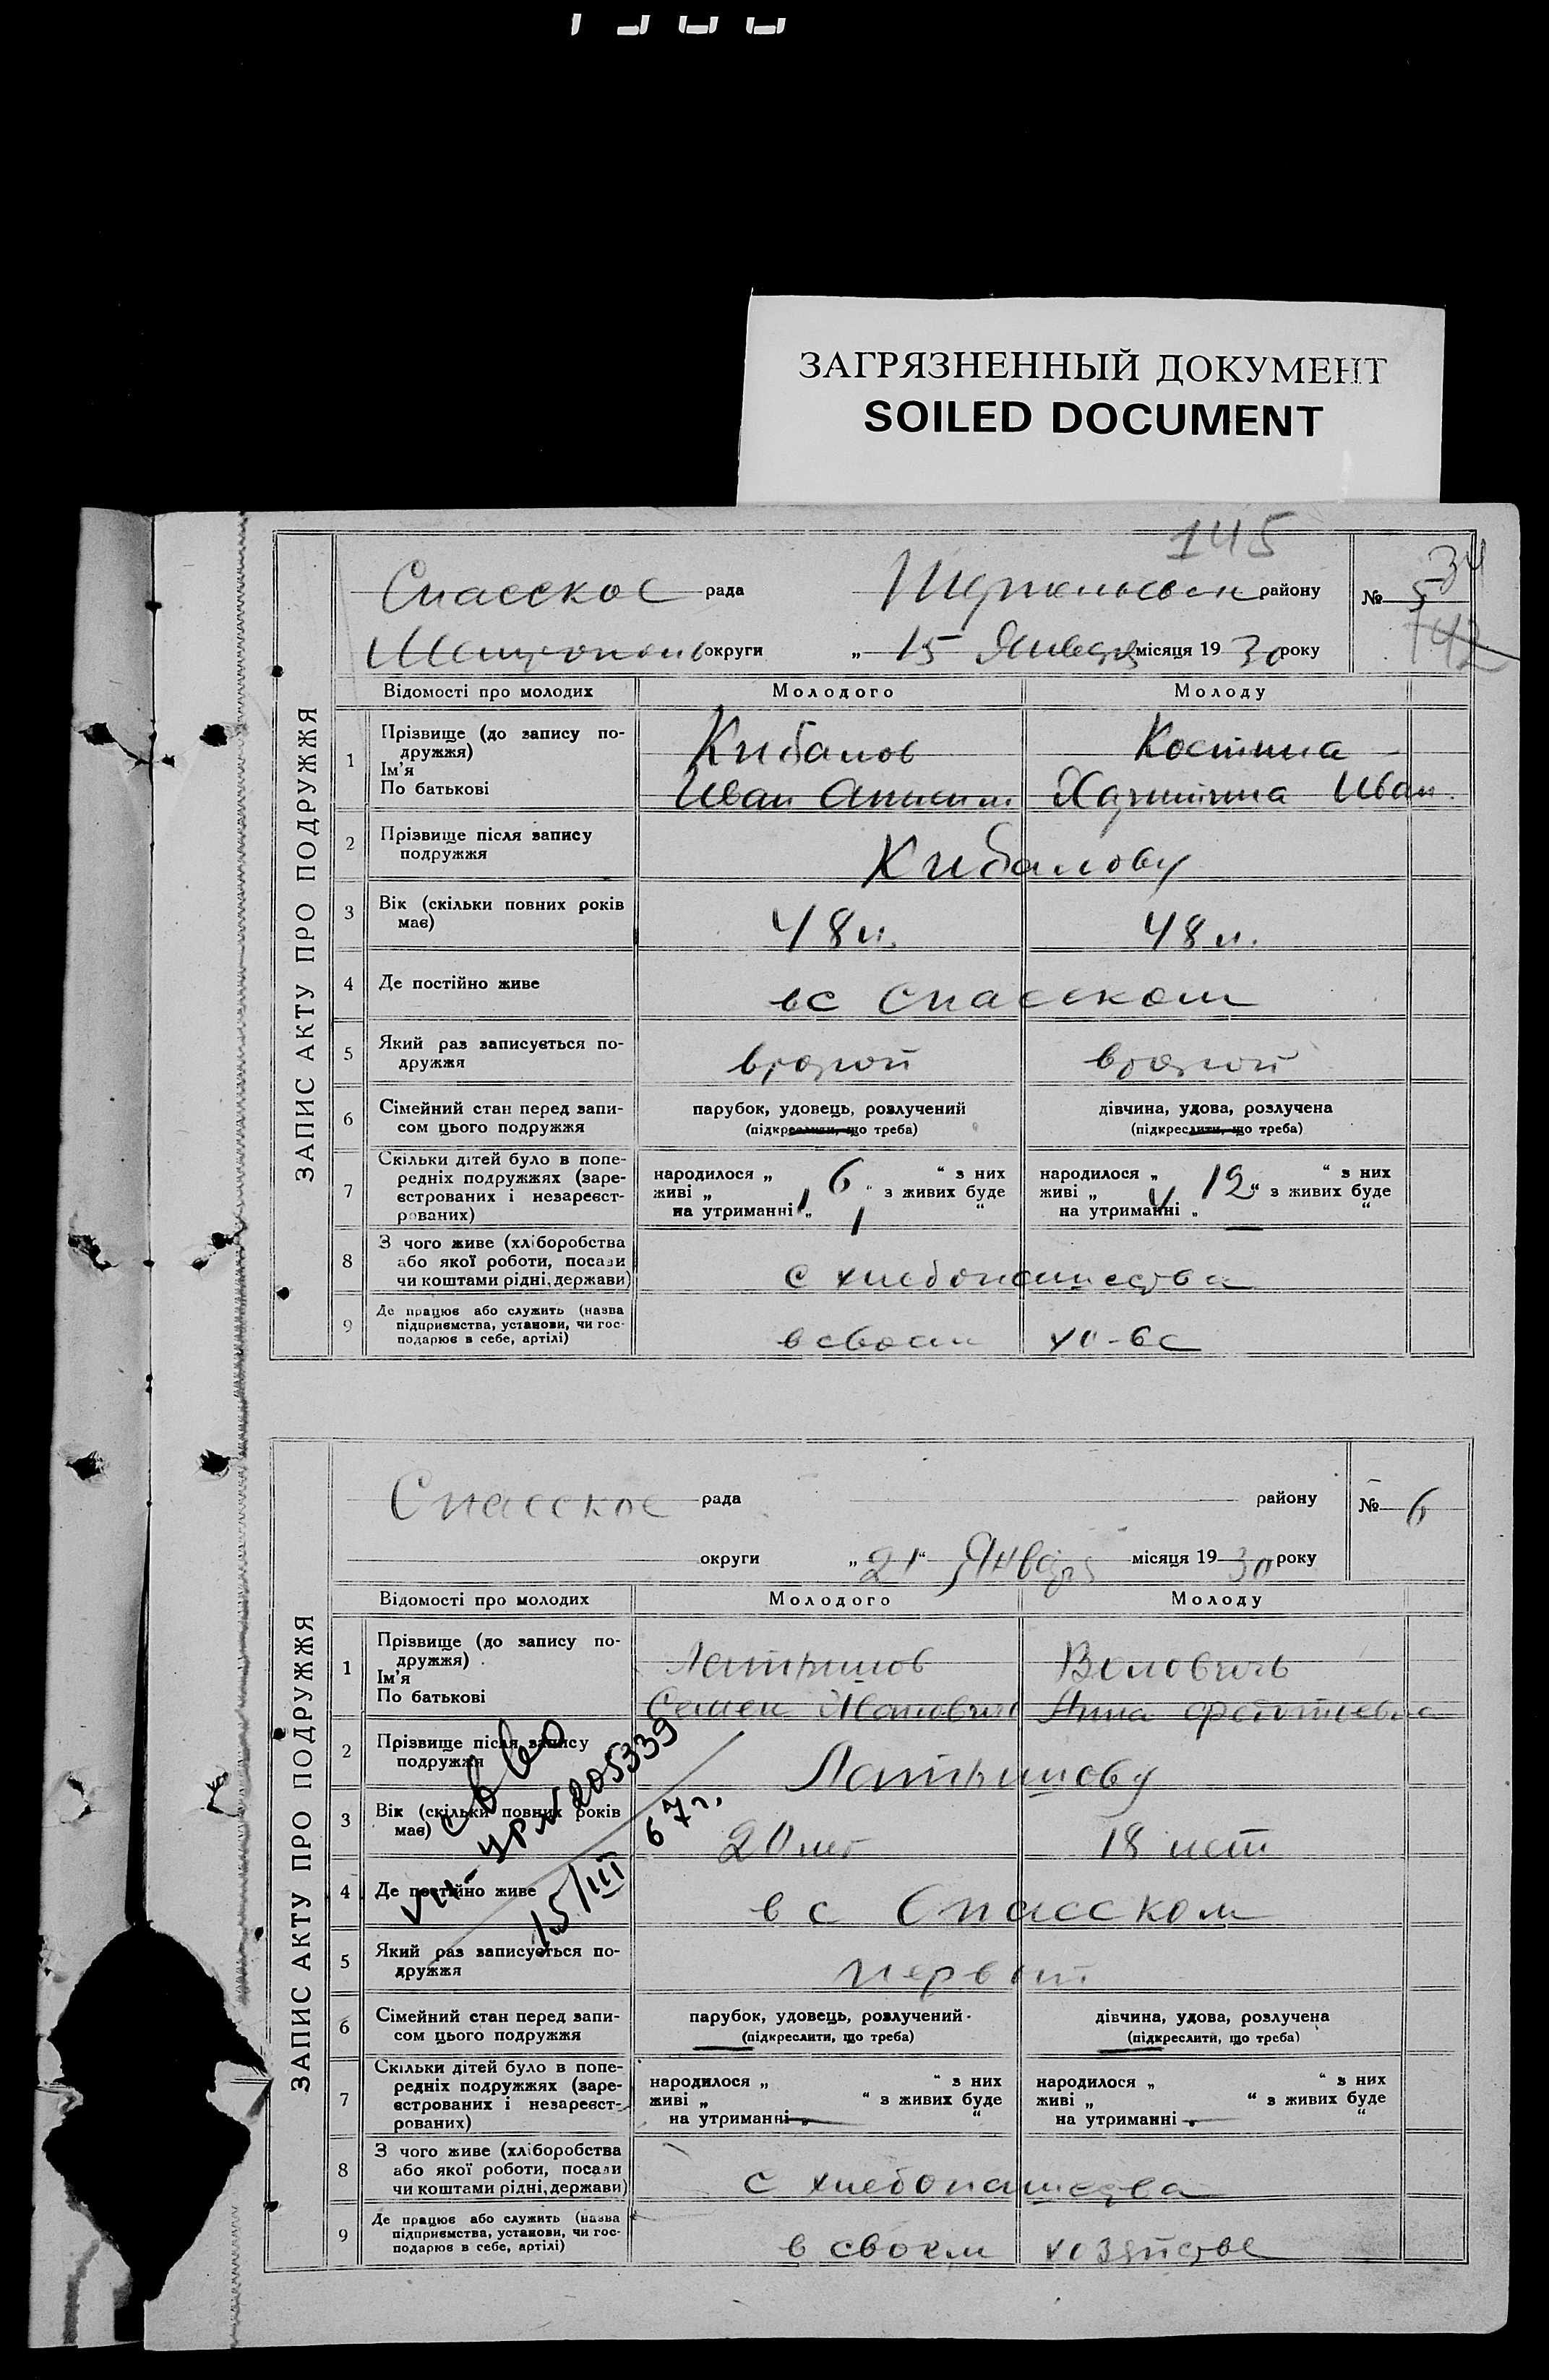 ЗАГРЯЗНЕННЫЙ ДОКУМЕНТ
SOILED DOCUMENT
145
ЗАПИС АКТУ ПРО ПОДРУЖЖЯ
Спасское рада району № 5 34
округи „ 15 Января місяця 1930 року 142
Відомості про молодих Молодого Молоду
1 Прізвище (до запису по-
дружжя)
Ім'я
По батькові
Кибалов Костина
Иван Харитина Иван.
2 Прізвище після запису
подружжя
Кибалову
3 Вік (скільки повних років
має)
48 л. 48 л.
4 Де постійно живе
в с Спасском
5 Який раз записується по-
дружжя
второй второй
6 Сімейний стан перед запи-
сом цього подружжя
парубок, удовець, розлучений дівчина, удова, розлучена
(підкреслити, що треба) (підкреслити, що треба)
7 Скільки дітей було в попе-
редніх подружжях (заре-
єстрованих і незареєст-
рованих)
народилося „ 6 “ з них народилося „ 12 “ з них
живі „ “ з живих буде живі „ “ з живих буде
на утриманні „ 1 “ на утриманні „ — “
8 З чого живе (хліборобства
або якої роботи, посади
чи коштами рідні, держави)
с хлебопашества
9 Де працює або служить (назва
підприємства, установи, чи гос-
подарює в себе, артілі)
в своем хо-ве
ЗАПИС АКТУ ПРО ПОДРУЖЖЯ
Спасское рада району № 6
округи „ 21 “ Января місяця 1930 року
Відомості про молодих Молодого Молоду
1 Прізвище (до запису по-
дружжя)
Ім'я
По батькові
Семен Иванович Анна
2 Прізвище після запису
подружжя
3 Вік (скільки повних років
має)
20 лет 18 лет
№ 205339
15/III 67 г.
4 Де постійно живе
в с Спасском
5 Який раз записується по-
дружжя
первый
6 Сімейний стан перед запи-
сом цього подружжя
парубок, удовець, розлучений дівчина, удова, розлучена
(підкреслити, що треба) (підкреслити, що треба)
7 Скільки дітей було в попе-
редніх подружжях (заре-
єстрованих і незареєст-
рованих)
народилося „ “ з них народилося „ “ з них
живі „ “ з живих буде живі „ “ з живих буде
на утриманні — „ “ на утриманні — „ “
8 З чого живе (хліборобства
або якої роботи, посади
чи коштами рідні, держави)
с хлебопашества
9 Де працює або служить (назва
підприємства, установи, чи гос-
подарює в себе, артілі)
в своем хозяйстве